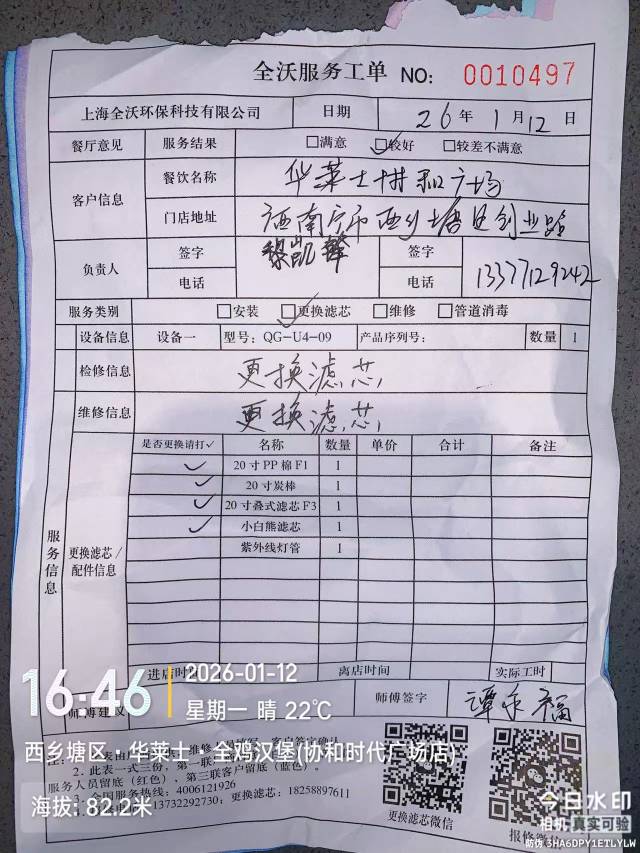 全沃服务工单 NO: 0010497
上海全沃环保科技有限公司 日期 26年1月12日
餐厅意见 服务结果 □满意 ☑较好 □较差不满意
客户信息 餐饮名称 华莱士
门店地址 西乡塘区创业路
负责人 签字 黎凯 签字
电话 电话 13377129242
服务类别 □安装 ☑更换滤芯 □维修 □管道消毒
设备信息 设备一 型号: QG-U4-09 产品序列号: 数量 1
检修信息 更换滤芯
维修信息 更换滤芯
服务信息 更换滤芯/配件信息
是否更换请打✓ 名称 数量 单价 合计 备注
✓ 20寸PP棉F1 1
✓ 20寸炭棒 1
✓ 20寸叠式滤芯F3 1
✓ 小白熊滤芯 1
紫外线灯管 1
进店时间 离店时间 实际工时
师傅建议 师傅签字 谭永福
16:46 2026-01-12
星期一 晴 22℃
西乡塘区·华莱士·全鸡汉堡(协和时代广场店)
海拔: 82.2米
2、此表一式三份，第一联
服务人员留底（红色），第三联客户留底（蓝色）。
3、全国服务热线: 4006121926
13732292730; 更换滤芯: 18258897611
更换滤芯微信
报修微信
今日水印
相机 真实可验
防伪 3HA6DPY1ETLYLW